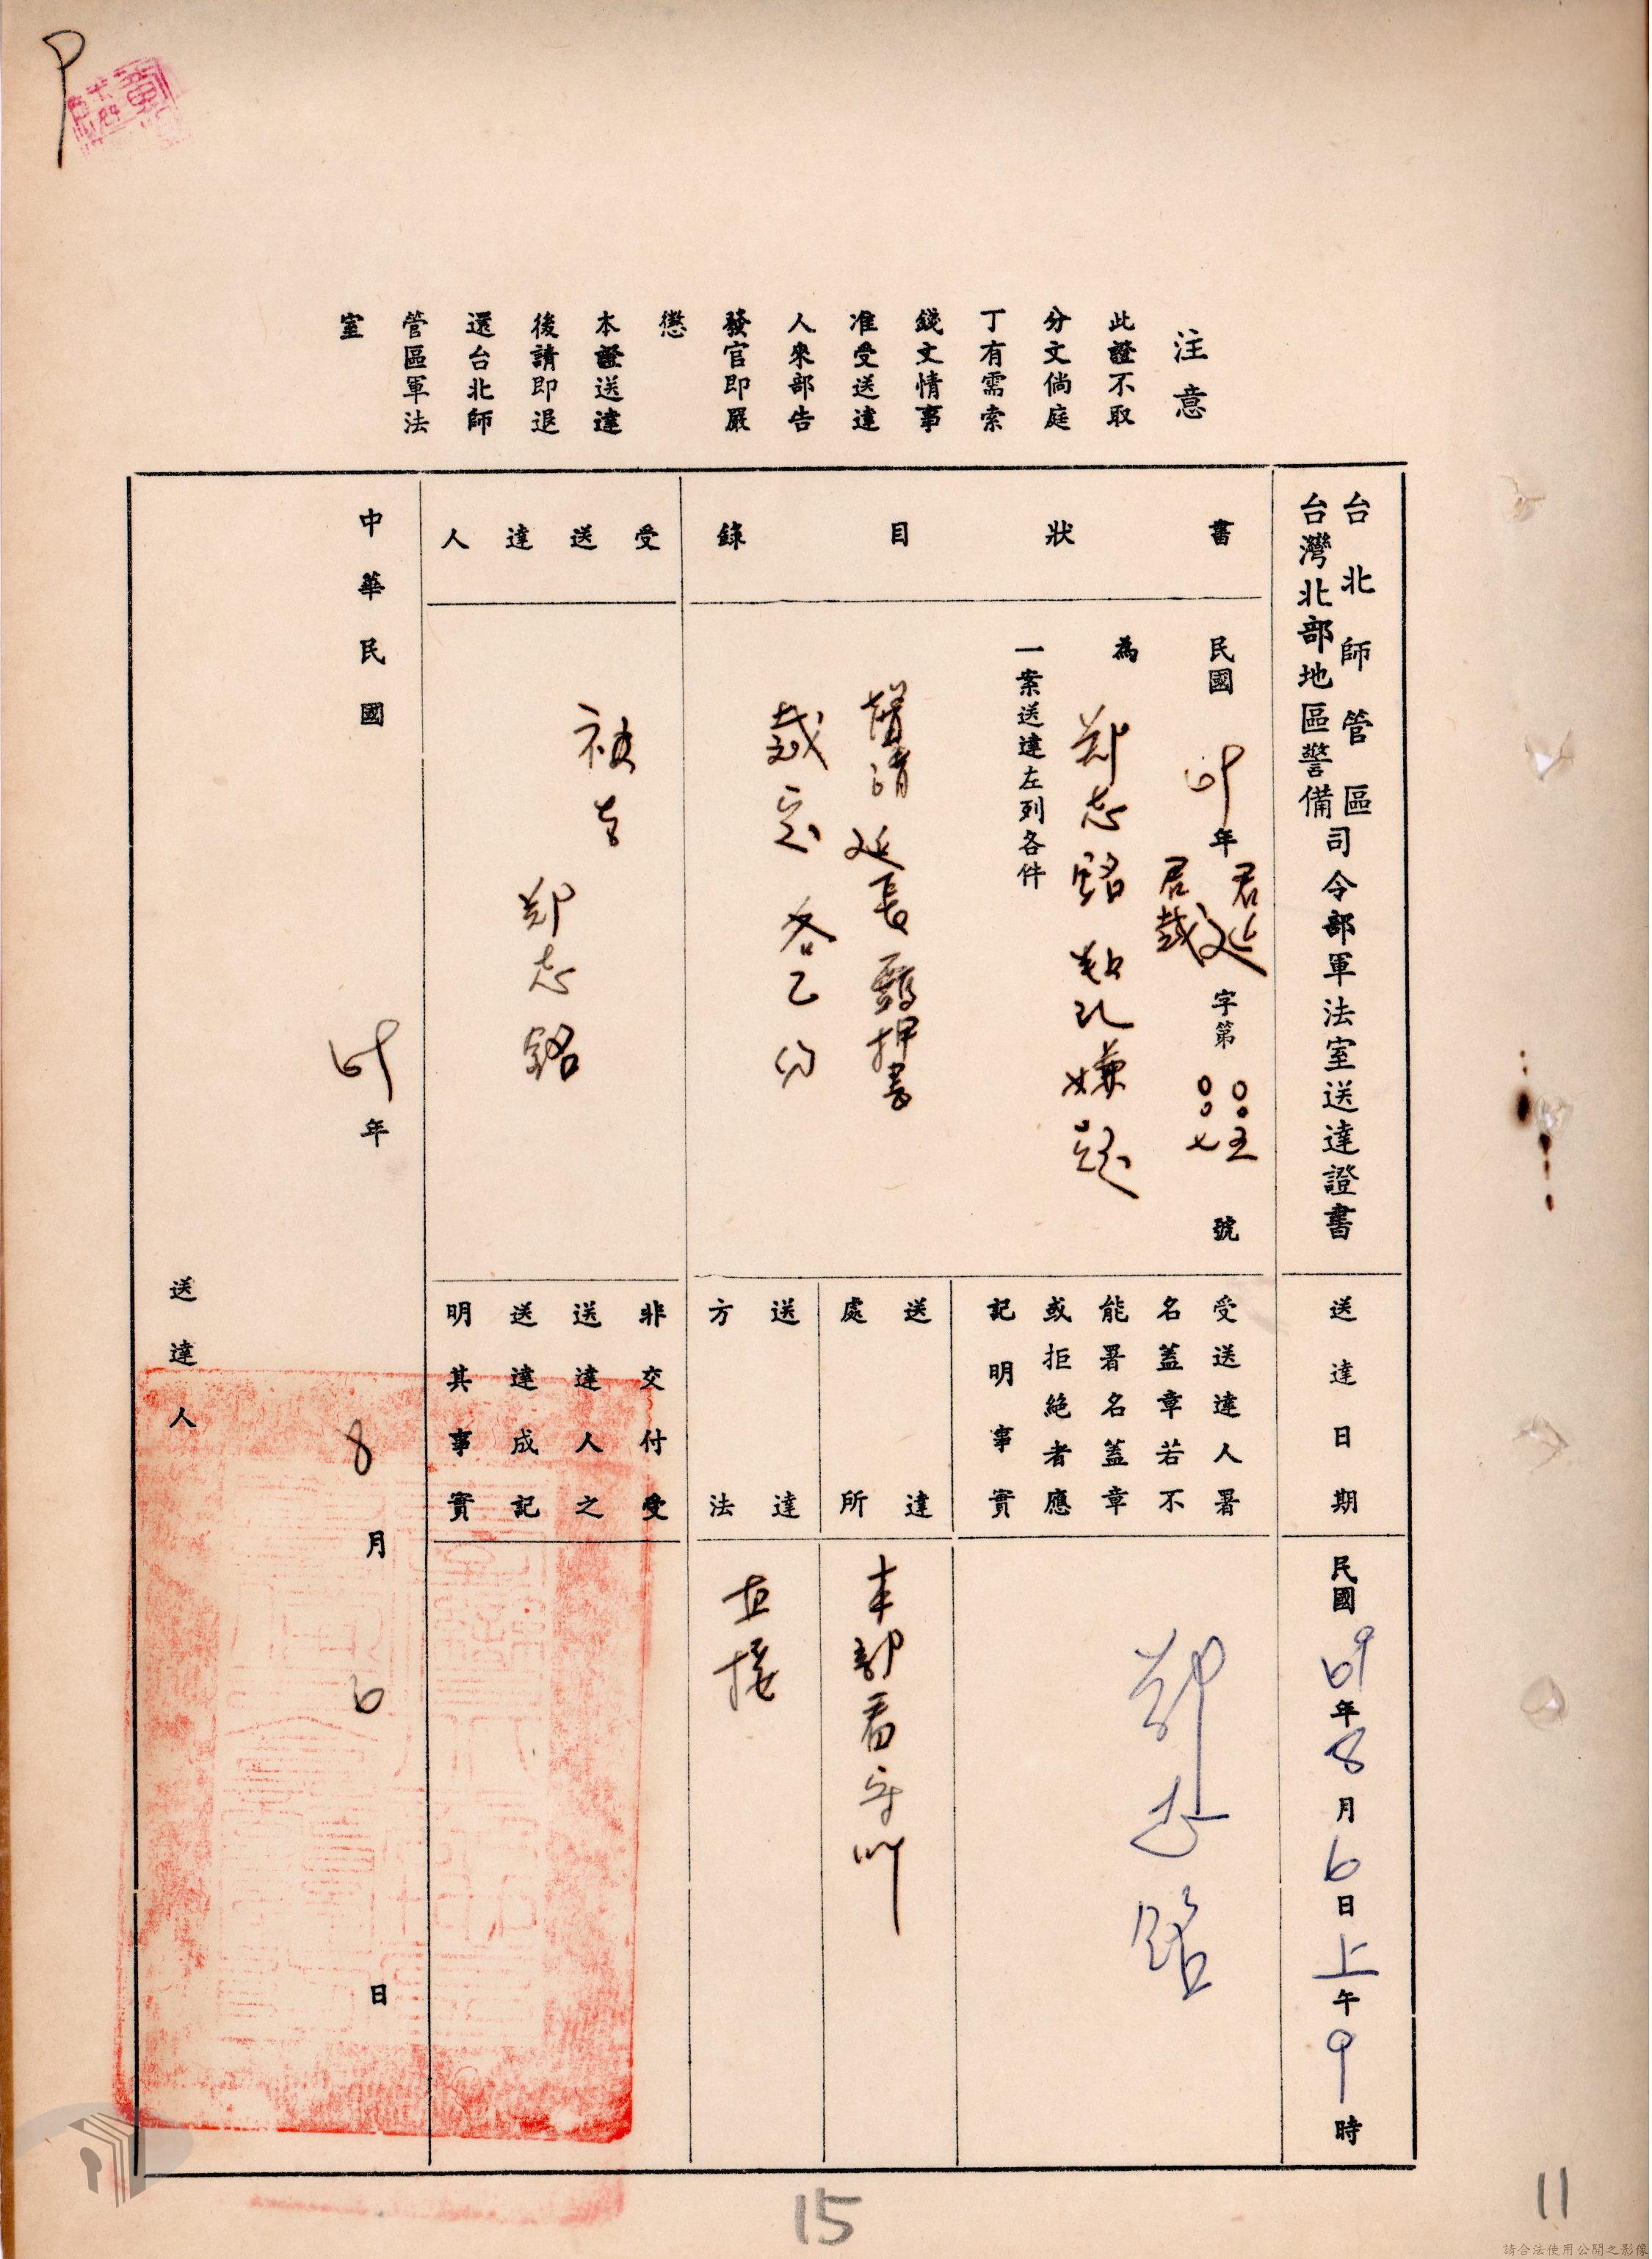 注意
此證不取
分文倘庭
丁有需索
錢文情事
准受送達
人來部告
發官即嚴
懲
本證送達
後請即退
還台北師
管區軍法
室
台北師管區
台灣北部地區警備
司令部軍法室送達證書
書狀目錄
民國69年
字第
00五
00七
號
為鄭志銘叛亂嫌疑
一案送達左列各件
聲請延長羈押書
裁定各乙份
受送達人
被告
鄭志銘
中華民國69年8月6日
送達人
送達日期
民國69年8月6日上午9時
受送達人署
名蓋章若不
能署名蓋章
或拒絕者應
記明事實
鄭志銘
送達
處所
本部看守所
送達
方法
直接
非交付受
送達人之
送達成記
明其事實
15
11
請合法使用公開之影像